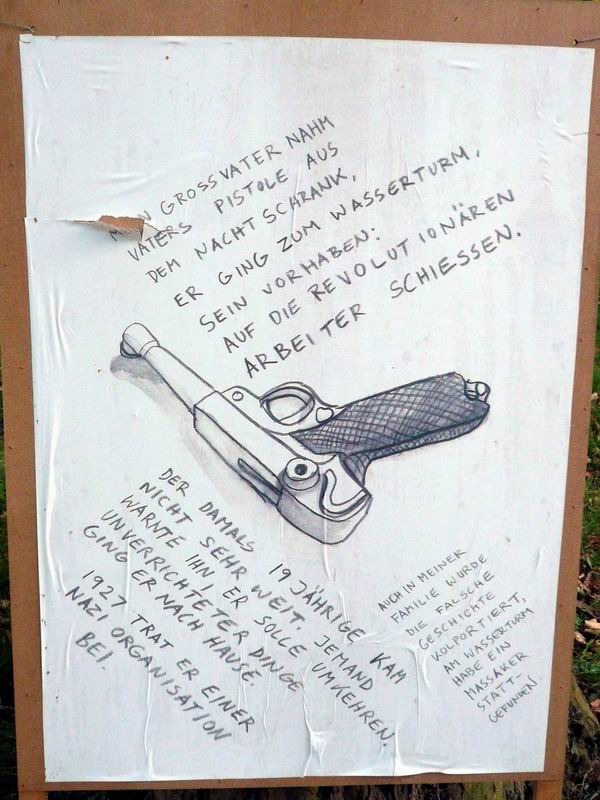 MEIN GROSSVATER NAHM
VATERS PISTOLE AUS
DEM NACHTSCHRANK,
ER GING ZUM WASSERTURM,
SEIN VORHABEN:
AUF DIE REVOLUTIONÄREN
ARBEITER SCHIESSEN.
DER DAMALS 19 JÄHRIGE KAM
NICHT SEHR WEIT. JEMAND
WARNTE IHN, ER SOLLE UMKEHREN.
UNVERRICHTETER DINGE
GING ER NACH HAUSE.
1927 TRAT ER EINER
NAZI ORGANISATION
BEI.
AUCH IN MEINER
FAMILIE WURDE
DIE FALSCHE
GESCHICHTE
KOLPORTIERT,
AM WASSERTURM
HABE EIN
MASSAKER
STATT-
GEFUNDEN.